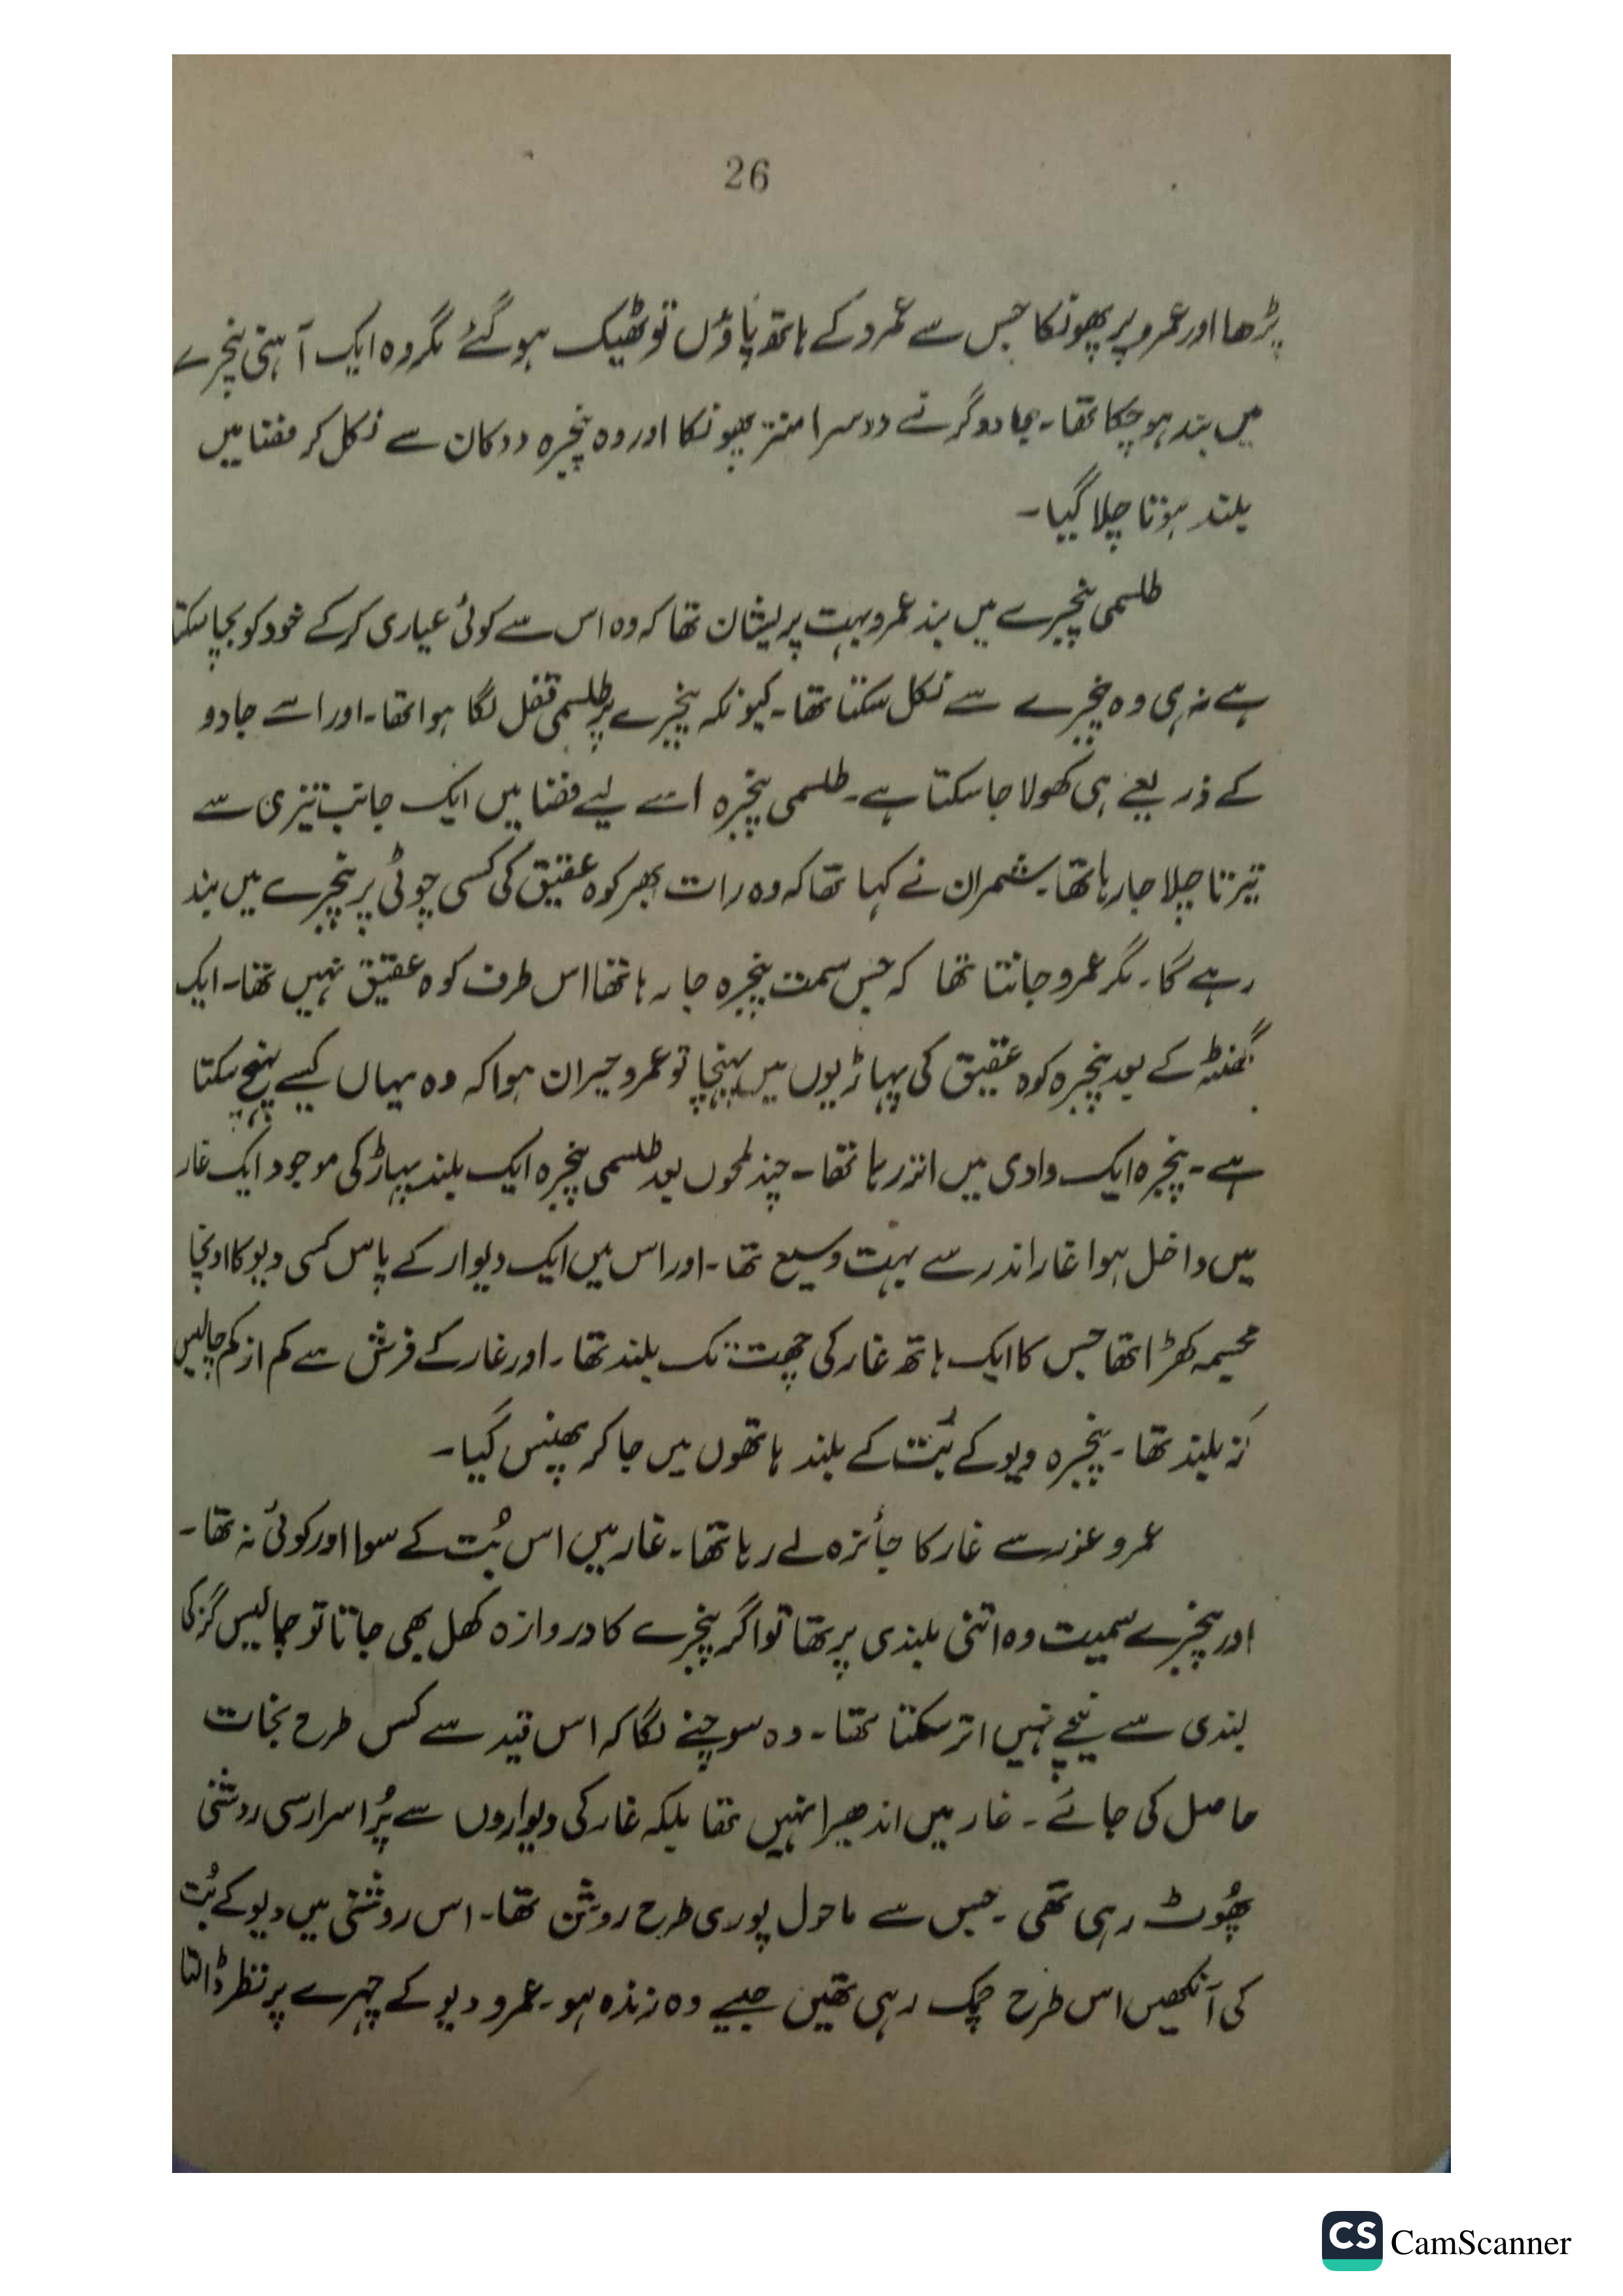 26
پڑھا اور عمرو پر پھونکا جس سے عمرو کے ہاتھ پاؤں تو ٹھیک ہو گئے مگر وہ ایک آہنی پنجرے
میں بند ہو چکا تھا۔ جادوگر نے دوسرا منتر پھونکا اور وہ پنجرہ دوکان سے نکل کر فضا میں
بلند ہوتا چلا گیا۔
طلسمی پنجرے میں بند عمرو بہت پریشان تھا کہ وہ اس سے کوئی عیاری کر کے خود کو بچا سکتا
ہے نہ ہی وہ پنجرے سے نکل سکتا تھا۔ کیونکہ پنجرے پر طلسمی قفل لگا ہوا تھا۔ اور اسے جادو
کے ذریعے ہی کھولا جا سکتا ہے۔ طلسمی پنجرہ اسے لیے فضا میں ایک جانب تیزی سے
تیرتا چلا جا رہا تھا۔ شمران نے کہا تھا کہ وہ رات بھر کوہ عقیق کی کسی چوٹی پر پنجرے میں بند
رہے گا۔ مگر عمرو جانتا تھا کہ جس سمت پنجرہ جا رہا تھا اس طرف کوہ عقیق نہیں تھا۔ ایک
گھنٹہ کے بعد پنجرہ کوہ عقیق کی پہاڑیوں میں پہنچا تو عمرو حیران ہوا کہ وہ یہاں کیسے پہنچ سکتا
ہے۔ پنجرہ ایک وادی میں اتر رہا تھا۔ چند لمحوں بعد طلسمی پنجرہ ایک بلند پہاڑ کی موجود ایک غار
میں داخل ہوا غار اندر سے بہت وسیع تھا۔ اور اس میں ایک دیوار کے پاس کسی دیو کا اونچا
مجسمہ کھڑا تھا جس کا ایک ہاتھ غار کی چھت تک بلند تھا۔ اور غار کے فرش سے کم از کم چالیس
گز بلند تھا۔ پنجرہ دیو کے بُت کے بلند ہاتھوں میں جا کر پھنس گیا۔
عمرو غور سے غار کا جائزہ لے رہا تھا۔ غار میں اس بُت کے سوا اور کوئی نہ تھا۔
اور پنجرے سمیت وہ اتنی بلندی پر تھا تو اگر پنجرے کا دروازہ کھل بھی جاتا تو چالیس گز کی
بلندی سے نیچے نہیں اتر سکتا تھا۔ وہ سوچنے لگا کہ اس قید سے کس طرح نجات
حاصل کی جائے۔ غار میں اندھیرا نہیں تھا بلکہ غار کی دیواروں سے پُر اسرار سی روشنی
پھُوٹ رہی تھی۔ جس سے ماحول پوری طرح روشن تھا۔ اس روشنی میں دیو کے بُت
کی آنکھیں اس طرح چمک رہی تھیں جیسے وہ زندہ ہو۔ عمرو دیو کے چہرے پر نظر ڈالتا
CS CamScanner